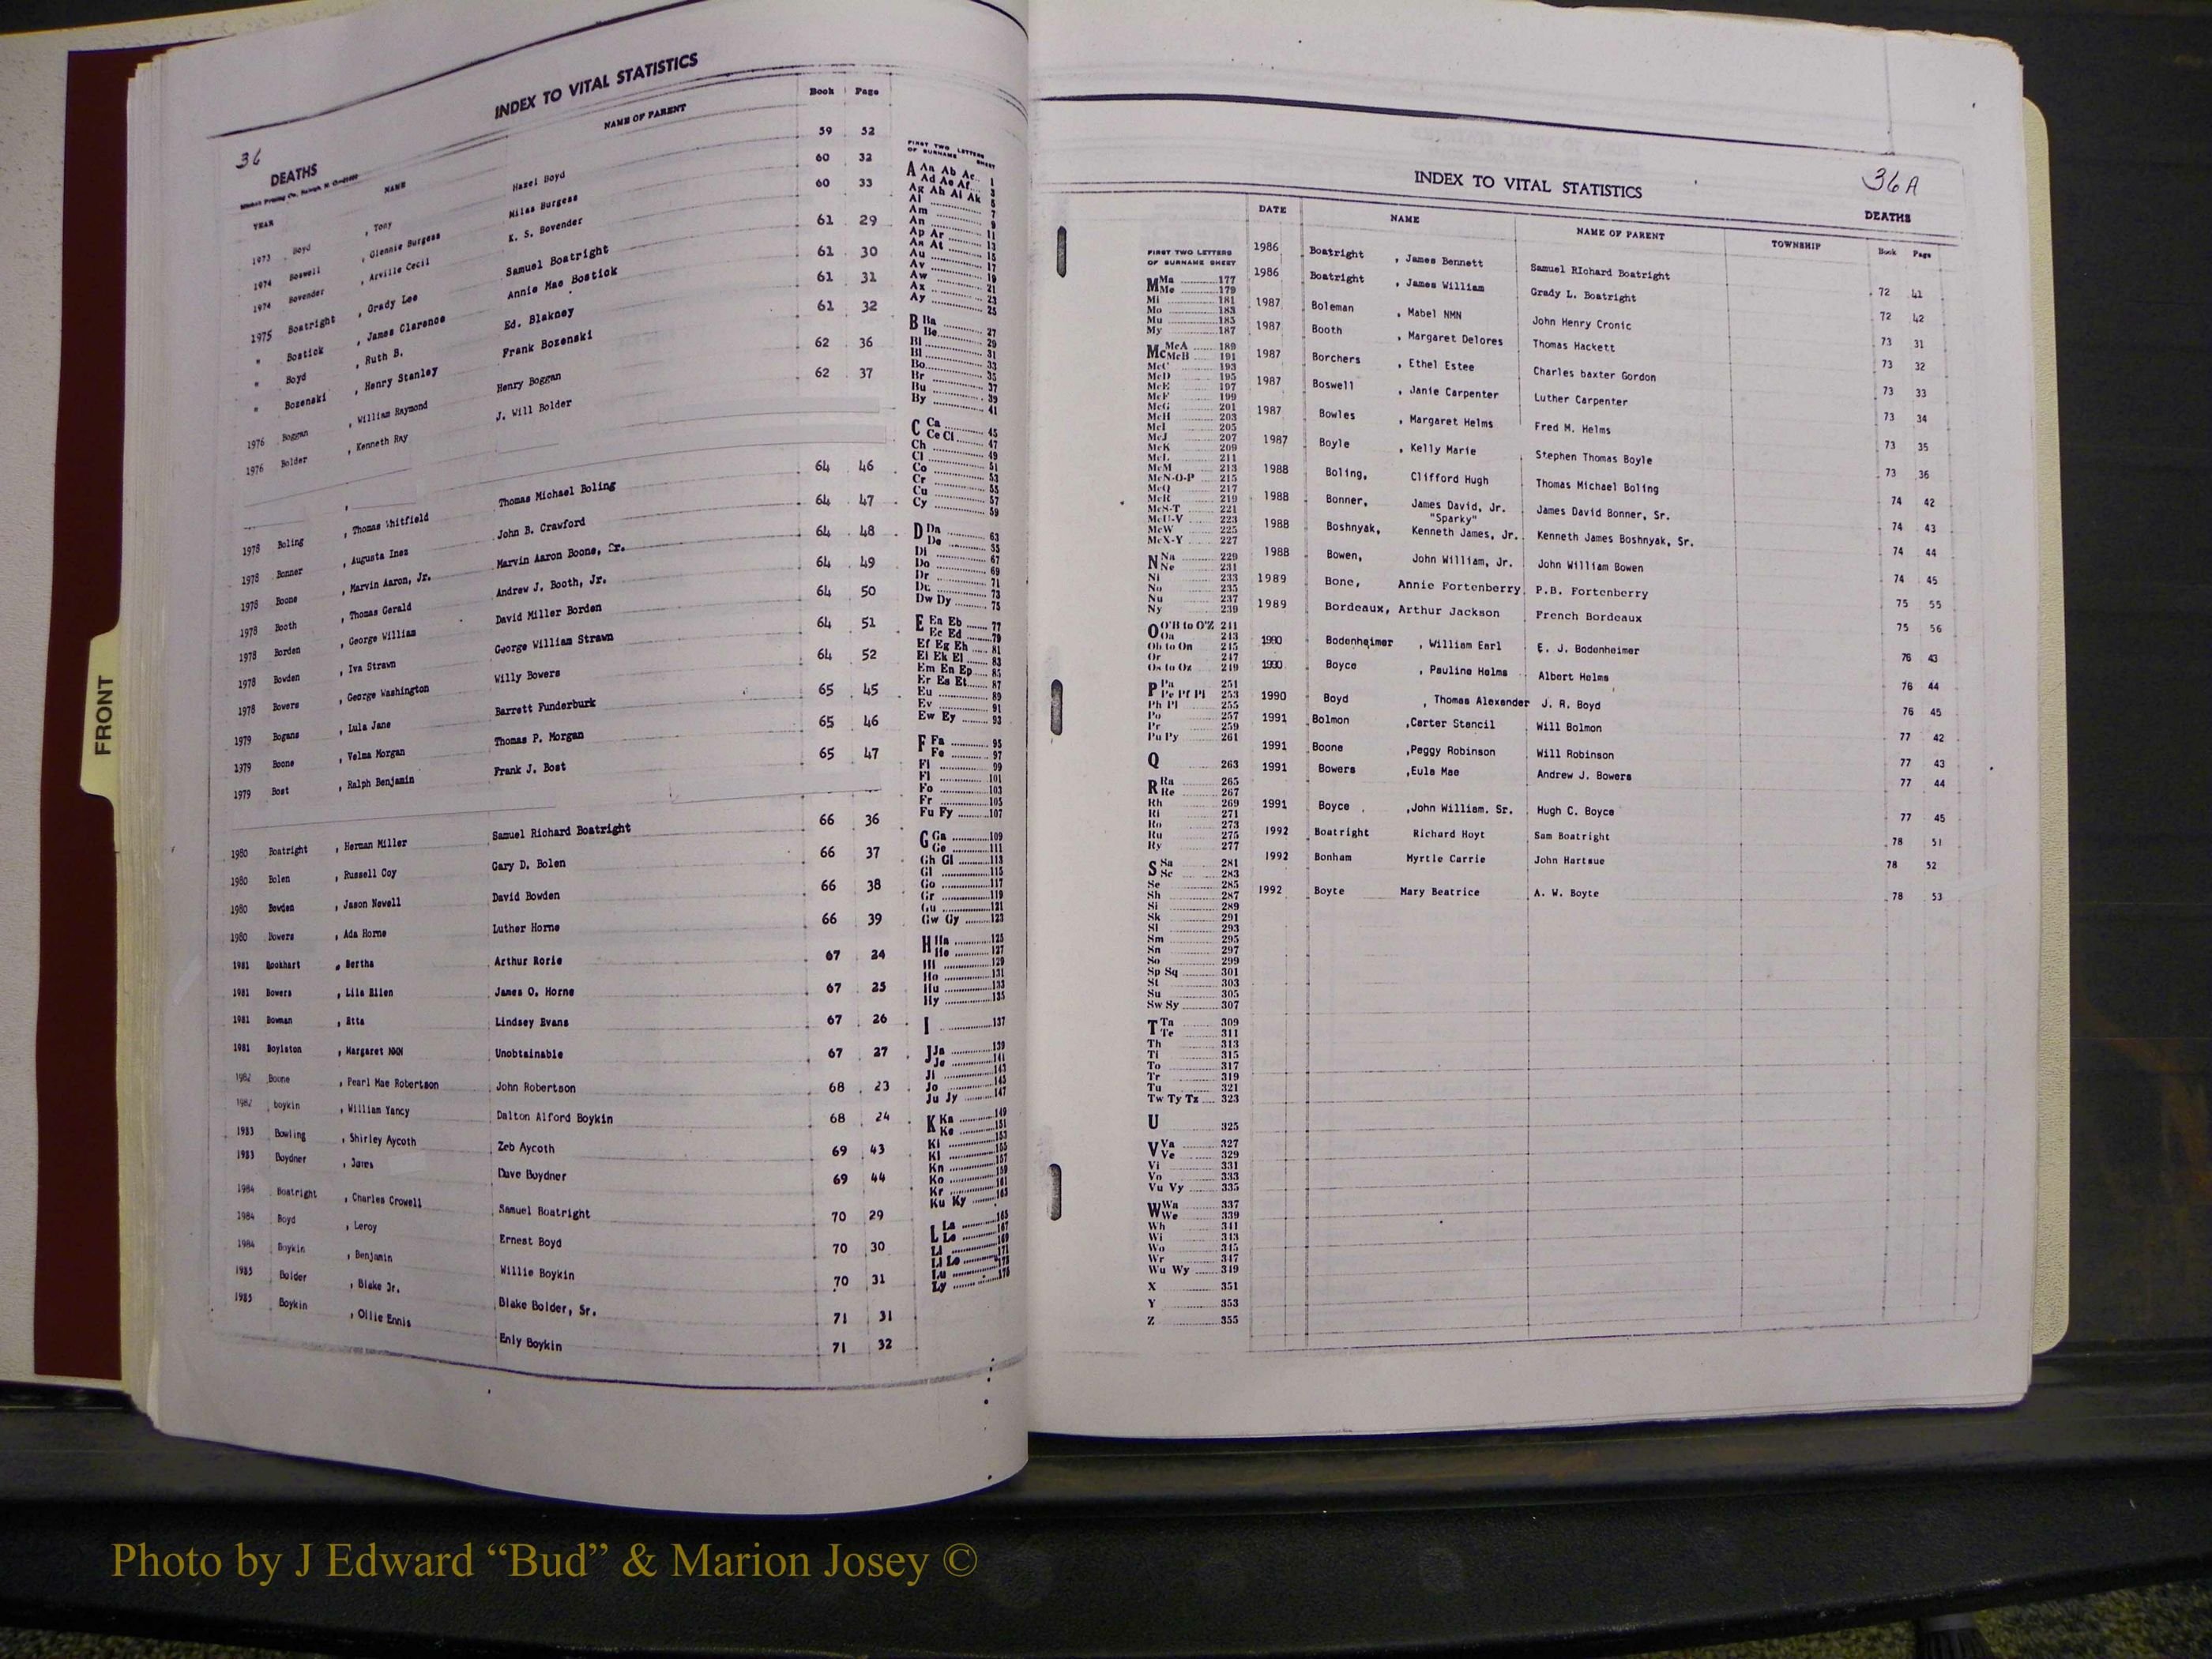 INDEX TO VITAL STATISTICS
36
DEATHS
YEAR NAME NAME OF PARENT Book Page
1973 Boyd , Tony Hazel Boyd 59 52
1974 Boswell , Glennie Burgess Miles Burgess 60 32
1974 Bovender , Arville Cecil K. S. Bovender 60 33
1975 Boatright , Grady Lee Samuel Boatright 61 29
" Bostick , James Clarence Annie Mae Bostick 61 30
" Boyd , Ruth B. Ed. Blakney 61 31
" Bozenski , Henry Stanley Frank Bozenski 61 32
1976 Boggan , William Raymond Henry Boggan 62 36
1976 Bolder , Kenneth Ray J. Will Bolder 62 37
1978 Boling , Thomas Whitfield Thomas Michael Boling 64 46
1978 Bonner , Augusta Ines John B. Crawford 64 47
1978 Boone , Marvin Aaron, Jr. Marvin Aaron Boone, Sr. 64 48
1978 Booth , Thomas Gerald Andrew J. Booth, Jr. 64 49
1978 Borden , George William David Miller Borden 64 50
1978 Bowden , Iva Strawn George William Strawn 64 51
1978 Bowers , George Washington Willy Bowers 64 52
1979 Bogans , Lula Jane Barrett Funderburk 65 45
1979 Boone , Velma Morgan Thomas P. Morgan 65 46
1979 Bost , Ralph Benjamin Frank J. Bost 65 47
1980 Boatright , Herman Miller Samuel Richard Boatright 66 36
1980 Bolen , Russell Coy Gary D. Bolen 66 37
1980 Bowden , Jason Newell David Bowden 66 38
1980 Bowers , Ada Horne Luther Horne 66 39
1981 Bookhart , Bertha Arthur Rorie 67 24
1981 Bowers , Lila Ellen James O. Horne 67 25
1981 Bowman , Etta Lindsey Evans 67 26
1981 Boylston , Margaret NMN Unobtainable 67 27
1982 Boone , Pearl Mae Robertson John Robertson 68 23
1982 boykin , William Yancy Dalton Alford Boykin 68 24
1983 Bowling , Shirley Aycoth Zeb Aycoth 69 43
1983 Boydner , James Dave Boydner 69 44
1984 Boatright , Charles Crowell Samuel Boatright 70 29
1984 Boyd , Leroy Ernest Boyd 70 30
1984 Boykin , Benjamin Willie Boykin 70 31
1985 Bolder , Blake Jr. Blake Bolder, Sr. 71 31
1985 Boykin , Ollie Ennis Enly Boykin 71 32
FIRST TWO LETTERS
OF SURNAME SHEET
A Aa Ab Ac 1
Ad Ae Af 3
Ag Ah Ai Ak 5
Al 7
Am 9
An 11
Ap Ar 13
As At 15
Au 17
Av 19
Aw 21
Ax 23
Ay 25
B Ba 27
Be 29
Bi 31
Bl 33
Bo 35
Br 37
Bu 39
By 41
C Ca 45
Ce Ci 47
Ch 49
Cl 51
Co 53
Cr 55
Cu 57
Cy 59
D Da 63
De
Di 67
Do 69
Dr 71
Du 73
Dw Dy 75
E Ea Eb 77
Ec Ed 79
Ef Eg Eh 81
Ei Ek El 83
Em En Ep 85
Er Es Et 87
Eu 89
Ev 91
Ew Ey 93
F Fa 95
Fe 97
Fi 99
Fl 101
Fo 103
Fr 105
Fu Fy 107
G Ga 109
Ge 111
Gh Gi 113
Gl 115
Go 117
Gr 119
Gu 121
Gw Gy 123
H Ha 125
He 127
Hi 129
Ho 131
Hu 133
Hy 135
I 137
J Ja 139
Je 141
Ji 143
Jo 145
Ju Jy 147
K Ka 149
Ke 151
Ki 153
Kl 155
Kn 157
Ko 159
Kr 161
Ku Ky 163
L La 165
Le 167
Li 169
Ll Lo 171
Lu 173
Ly 175
INDEX TO VITAL STATISTICS
36A
DEATHS
DATE NAME NAME OF PARENT TOWNSHIP Book Page
1986 Boatright , James Bennett Samuel RIchard Boatright 72 41
1986 Boatright , James William Grady L. Boatright 72 42
1987 Boleman , Mabel NMN John Henry Cronic 73 31
1987 Booth , Margaret Delores Thomas Hackett 73 32
1987 Borchers , Ethel Estee Charles baxter Gordon 73 33
1987 Boswell , Janie Carpenter Luther Carpenter 73 34
1987 Bowles , Margaret Helms Fred M. Helms 73 35
1987 Boyle , Kelly Marie Stephen Thomas Boyle 73 36
1988 Boling, Clifford Hugh Thomas Michael Boling 74 42
1988 Bonner, James David, Jr. James David Bonner, Sr. 74 43
"Sparky"
1988 Boshnyak, Kenneth James, Jr. Kenneth James Boshnyak, Sr. 74 44
1988 Bowen, John William, Jr. John William Bowen 74 45
1989 Bone, Annie Fortenberry P.B. Fortenberry 75 55
1989 Bordeaux, Arthur Jackson French Bordeaux 75 56
1990 Bodenheimer , William Earl E. J. Bodenheimer 76 43
1990 Boyce , Pauline Helms Albert Helms 76 44
1990 Boyd , Thomas Alexander J. R. Boyd 76 45
1991 Bolmon ,Carter Stancil Will Bolmon 77 42
1991 Boone ,Peggy Robinson Will Robinson 77 43
1991 Bowers ,Eula Mae Andrew J. Bowers 77 44
1991 Boyce ,John William. Sr. Hugh C. Boyce 77 45
1992 Boatright Richard Hoyt Sam Boatright 78 51
1992 Bonham Myrtle Carrie John Hartsue 78 52
1992 Boyte Mary Beatrice A. W. Boyte 78 53
FIRST TWO LETTERS
OF SURNAME SHEET
M Ma 177
Me 179
Mi 181
Mo 183
Mu 185
My 187
Mc McA 189
McB 191
McC 193
McD 195
McE 197
McF 199
McG 201
McH 203
McI 205
McJ 207
McK 209
McL 211
McM 213
McN-O-P 215
McQ 217
McR 219
McS-T 221
McU-V 223
McW 225
McX-Y 227
N Na 229
Ne 231
Ni 233
No 235
Nu 237
Ny 239
O O'B to O'Z 241
Oa 243
Ob to On 245
Or 247
Os to Oz 249
P Pa 251
Pe Pf Pi 253
Ph Pl 255
Po 257
Pr 259
Pu Py 261
Q 263
R Ra 265
Re 267
Rh 269
Ri 271
Ro 273
Ru 275
Ry 277
S Sa 281
Sc 283
Se 285
Sh 287
Si 289
Sk 291
Sl 293
Sm 295
Sn 297
So 299
Sp Sq 301
St 303
Su 305
Sw Sy 307
T Ta 309
Te 311
Th 313
Ti 315
To 317
Tr 319
Tu 321
Tw Ty Tz 323
U 325
V Va 327
Ve 329
Vi 331
Vo 333
Vu Vy 335
W Wa 337
We 339
Wh 341
Wi 343
Wo 345
Wr 347
Wu Wy 349
X 351
Y 353
Z 355
FRONT
Photo by J Edward “Bud” & Marion Josey ©